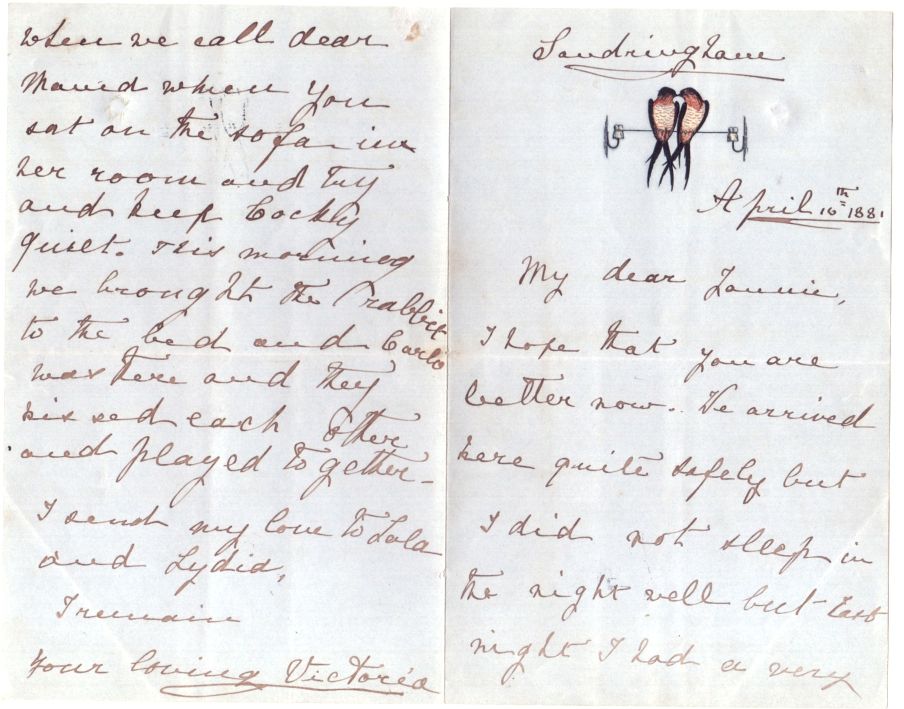 Sandringham
April 16th 1881
My dear Fannie,
I hope that you are
better now. We arrived
here quite safely but
I did not sleep in
the night well but last
night I had a very
when we call dear
Maud when you
sat on the sofa in
her room and try
and keep Cocky
quiet. This morning
we brought the rabbit
to the bed and Carlo
was there and they
kissed each other
and played together-
I send my love to Lala
and Lydia,
I remain
Your loving Victoria